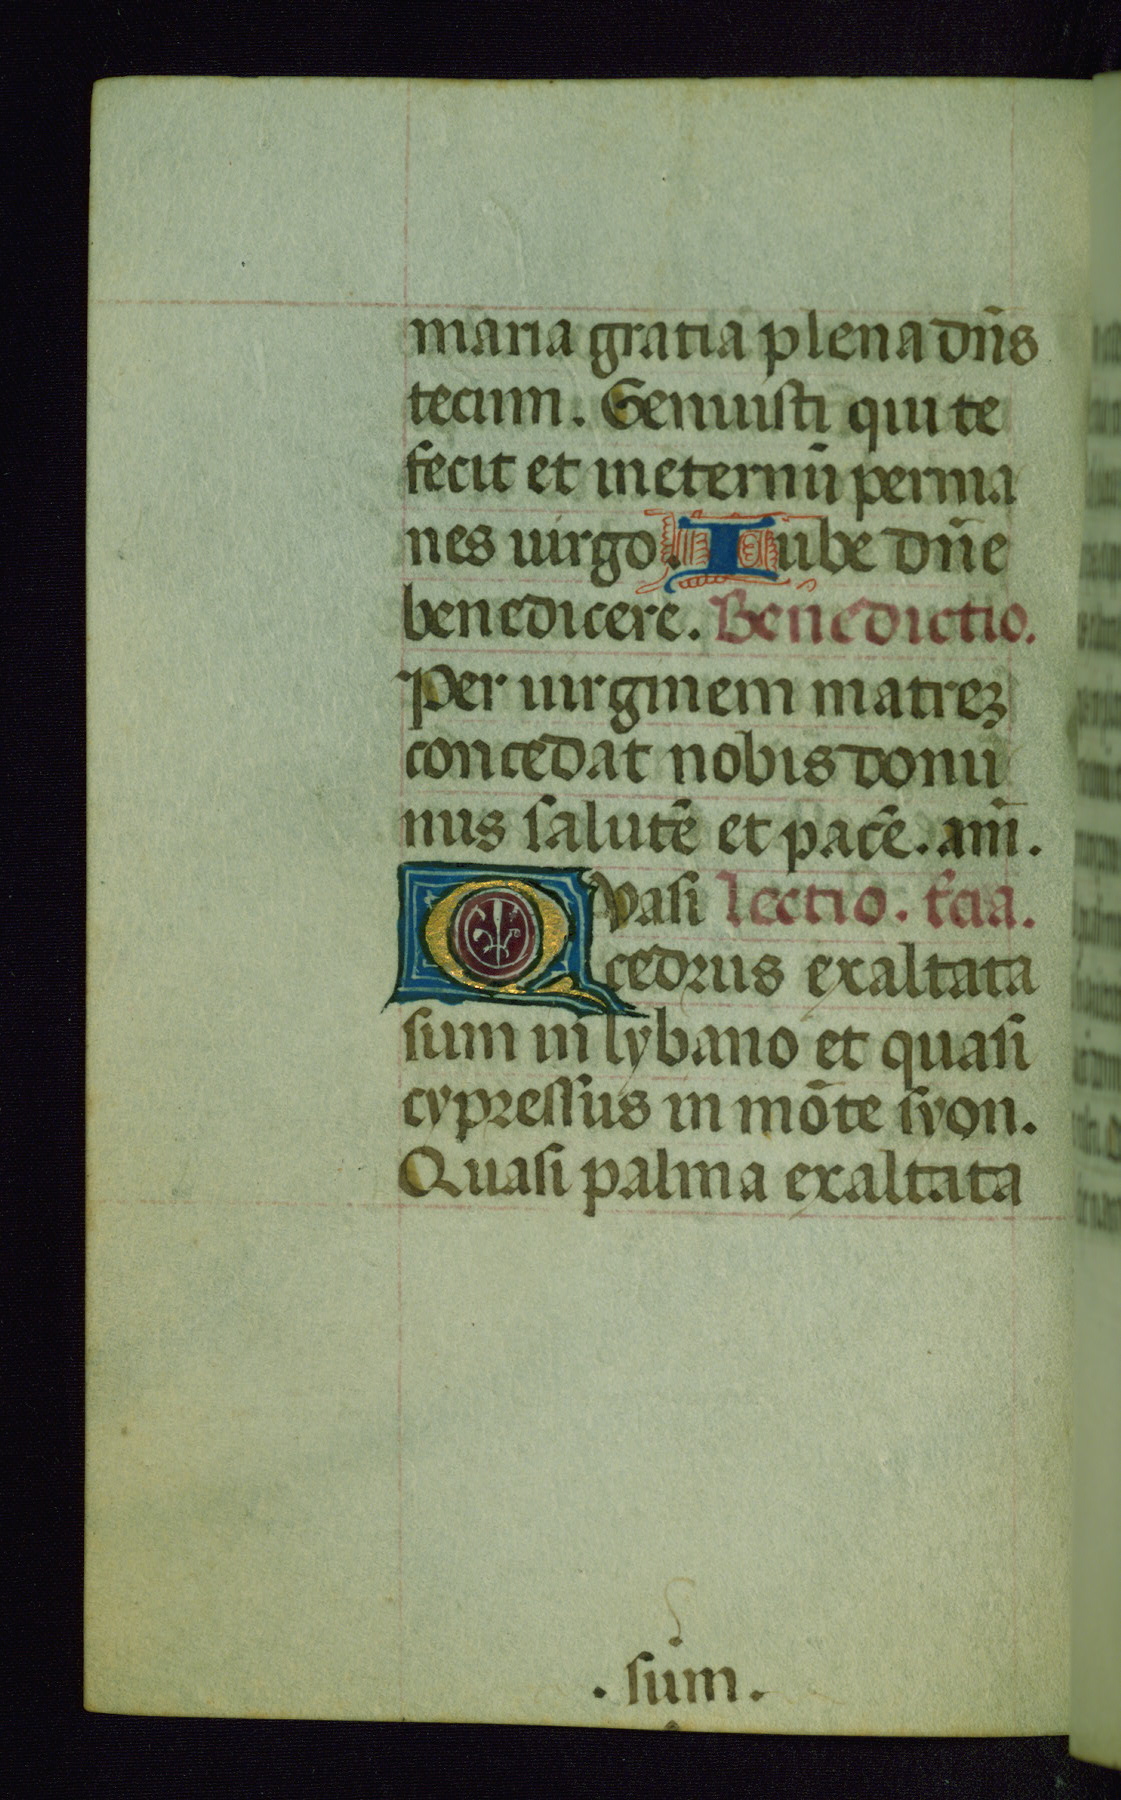 maria gratia plena dn̄s
tecum. Genuisti qui te
fecit et in eternū perma
nes uirgo. Iube dn̄e
benedicere. Benedictio.
Per uirginem matreꝫ
concedat nobis domi
nus salutē et pacē. am̄.
Quasi Lectio. t̄cia.
cedrus exaltata
sum in lybano et quasi
cypressus in mōte syon.
Quasi palma exaltata
. sum .